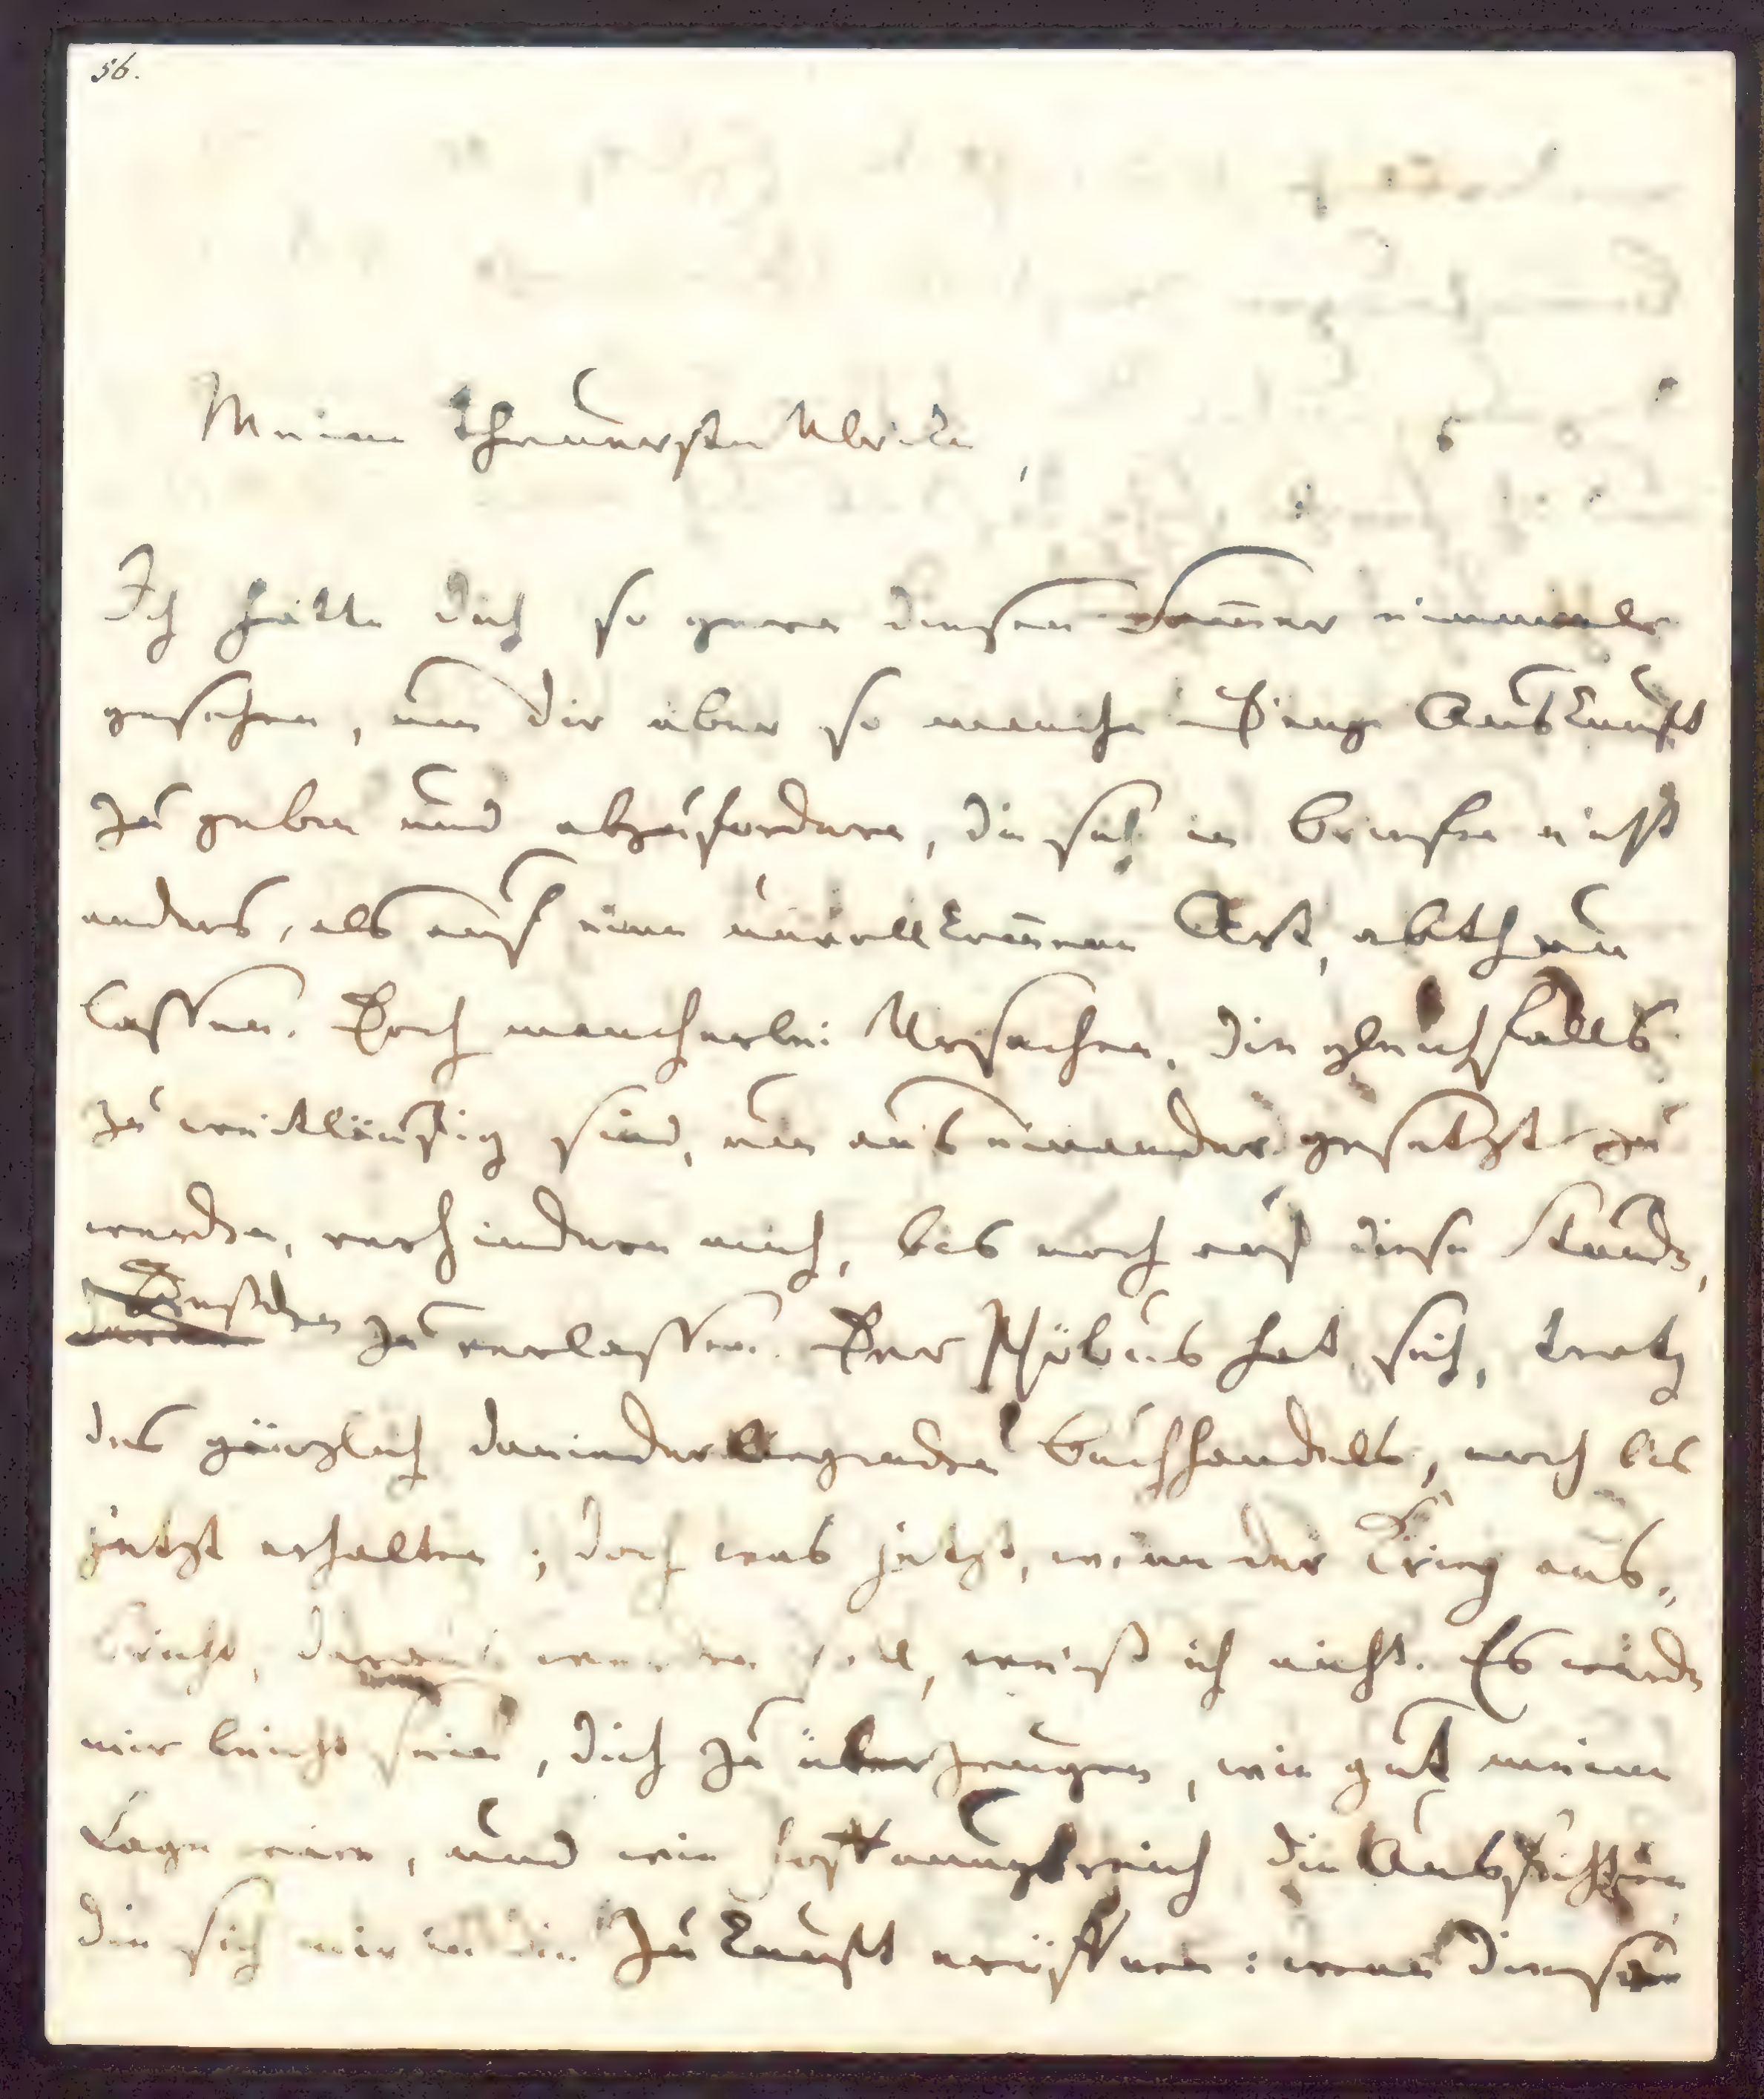 56.
Meine theuerste Ulrike,
Ich hätte dich so gern diesen Som̄er einmal
gesehen, um dir über so manche Dinge Auskunft
zu geben und abzufordern, die sich in Briefen nicht
anders, als auf eine unvollkom̄ne Art, abthun
lassen. Doch mancherlei Ursachen, die gleichfalls
zu weitläufig sind, um auseinander gesetzt zu
werden, verhindern mich, bis noch auf diese Stunde,
Dresden zu verlassen. Der Phöbus hat sich, trotz
des gänzlich daniederliegenden Buchhandels, noch bis
jetzt erhalten; doch was jetzt, wenn der Krieg aus-
bricht, daraus werden soll, weiß ich nicht. Es würde
mir leicht sein, dich zu überzeugen, wie gut meine
Lage wäre, und wie hoffnungsreich die Aussichten,
die sich mir in die Zukunft eröffnen: wenn diese